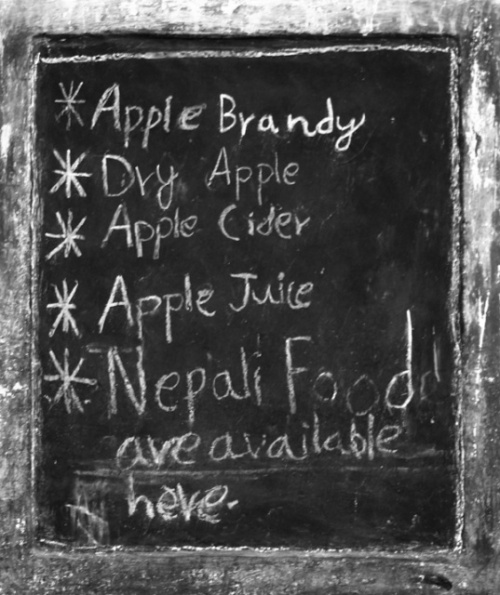 * Apple Brandy
* Dry Apple
* Apple Cider
* Apple Juice
* Nepali Food
are available
here.